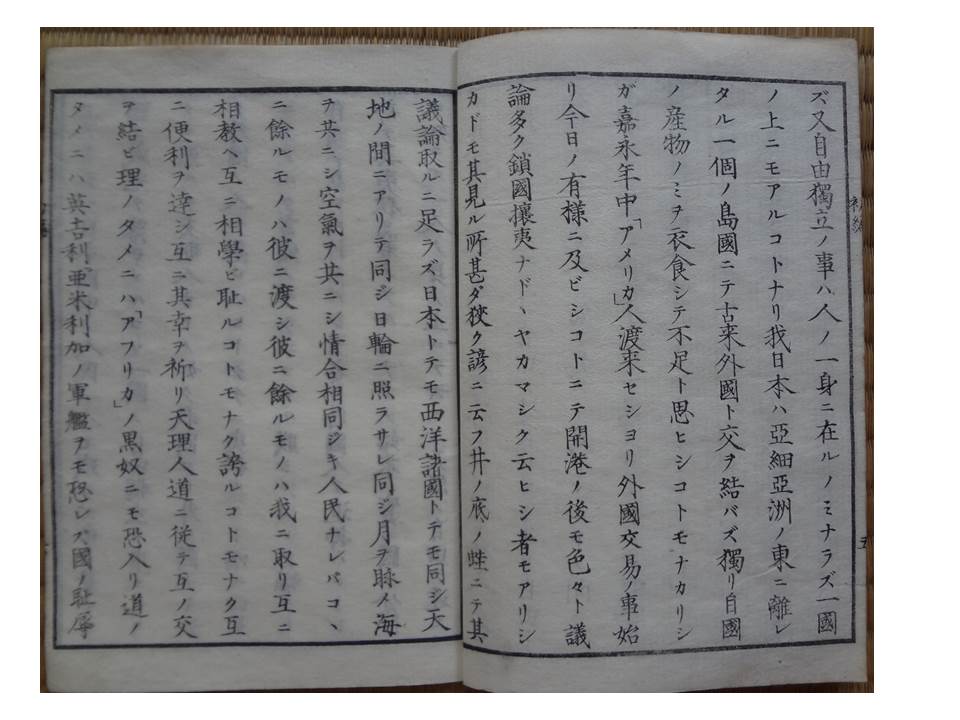 ズ又自由獨立ノ事ハ人ノ一身ニ在ルノミナラズ一國
ノ上ニモアルコトナリ我日本ハ亞細亞洲ノ東ニ離レ
タル一個ノ島國ニテ古来外國ト交ヲ結バズ獨リ自國
ノ産物ノミヲ衣食シテ不足ト思ヒシコトモナカリシ
ガ嘉永年中「アメリカ」人渡来セシヨリ外國交易ノ事始
リ今日ノ有様ニ及ビシコトニテ開港ノ後モ色々ト議
論多ク鎖國攘夷ナドヽヤカマシク云ヒシ者モアリシ
カドモ其見ル所甚ダ狹ク諺ニ云フ井ノ底ノ蛙ニテ其
議論取ルニ足ラズ日本トテモ西洋諸國トテモ同シ天
地ノ間ニアリテ同ジ日輪ニ照ラサレ同ジ月ヲ眺メ海
ヲ共ニシ空氣ヲ共ニシ情合相同ジキ人民ナレバコヽ
ニ餘ルモノハ彼ニ渡シ彼ニ餘ルモノハ我ニ取リ互ニ
相教ヘ互ニ相學ビ耻ルコトモナク誇ルコトモナク互
ニ便利ヲ達シ互ニ其幸ヲ祈リ天理人道ニ従テ互ノ交
ヲ結ビ理ノタメニハ「アフリカ」ノ黒奴ニモ恐入リ道ノ
タメニハ英吉利亜米利加ノ軍艦ヲモ恐レズ國ノ耻辱